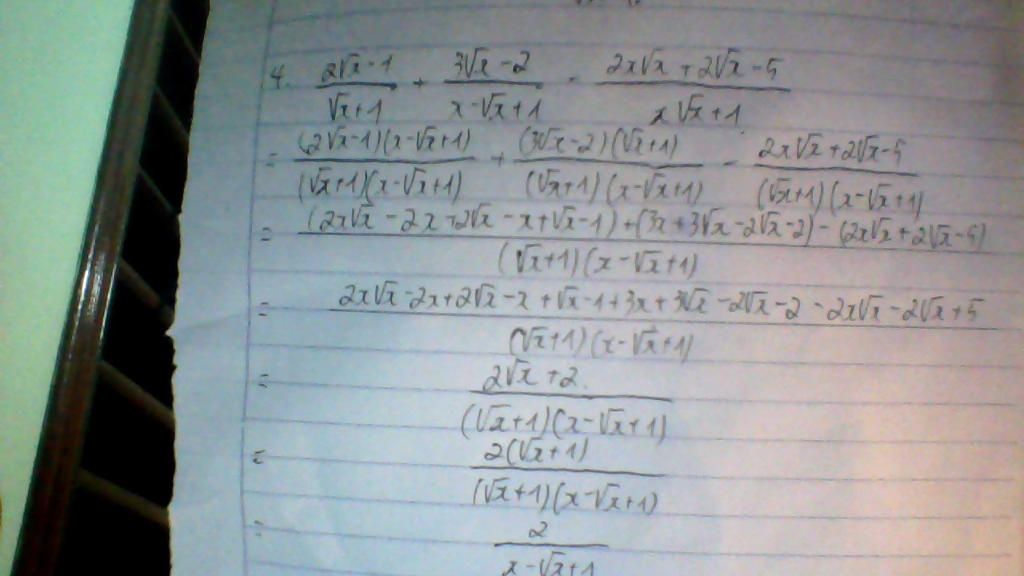 4. (2√x - 1)/(√x + 1) + (3√x - 2)/(x - √x + 1) - (2x√x + 2√x - 5)/(x√x + 1)
= ((2√x - 1)(x - √x + 1))/((√x + 1)(x - √x + 1)) + ((3√x - 2)(√x + 1))/((√x + 1)(x - √x + 1)) - (2x√x + 2√x - 5)/((√x + 1)(x - √x + 1))
= ((2x√x - 2x + 2√x - x + √x - 1) + (3x + 3√x - 2√x - 2) - (2x√x + 2√x - 5))/((√x + 1)(x - √x + 1))
= (2x√x - 2x + 2√x - x + √x - 1 + 3x + 3√x - 2√x - 2 - 2x√x - 2√x + 5)/((√x + 1)(x - √x + 1))
= (2√x + 2)/((√x + 1)(x - √x + 1))
= (2(√x + 1))/((√x + 1)(x - √x + 1))
= 2/(x - √x + 1)